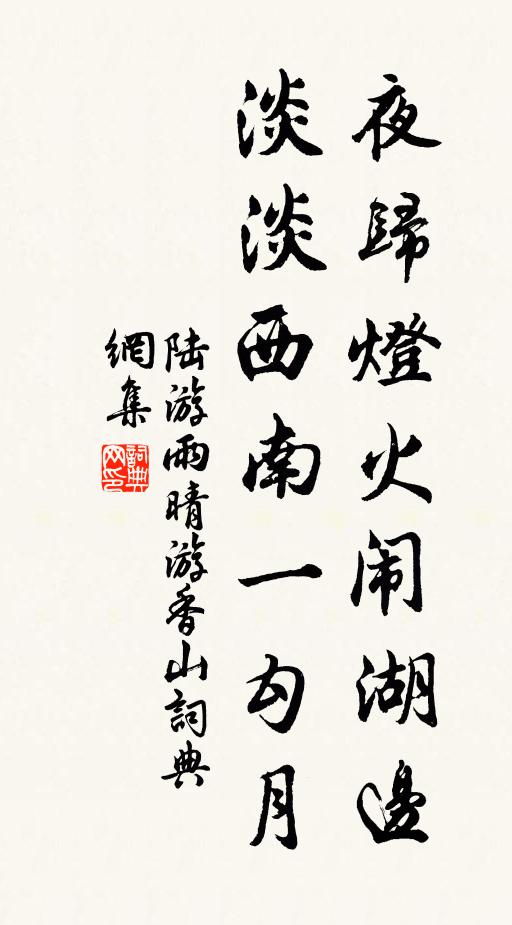 夜歸燈火闹湖邊
淡淡西南一勾月
陆游雨晴游香山詞典
網集
詞典网印